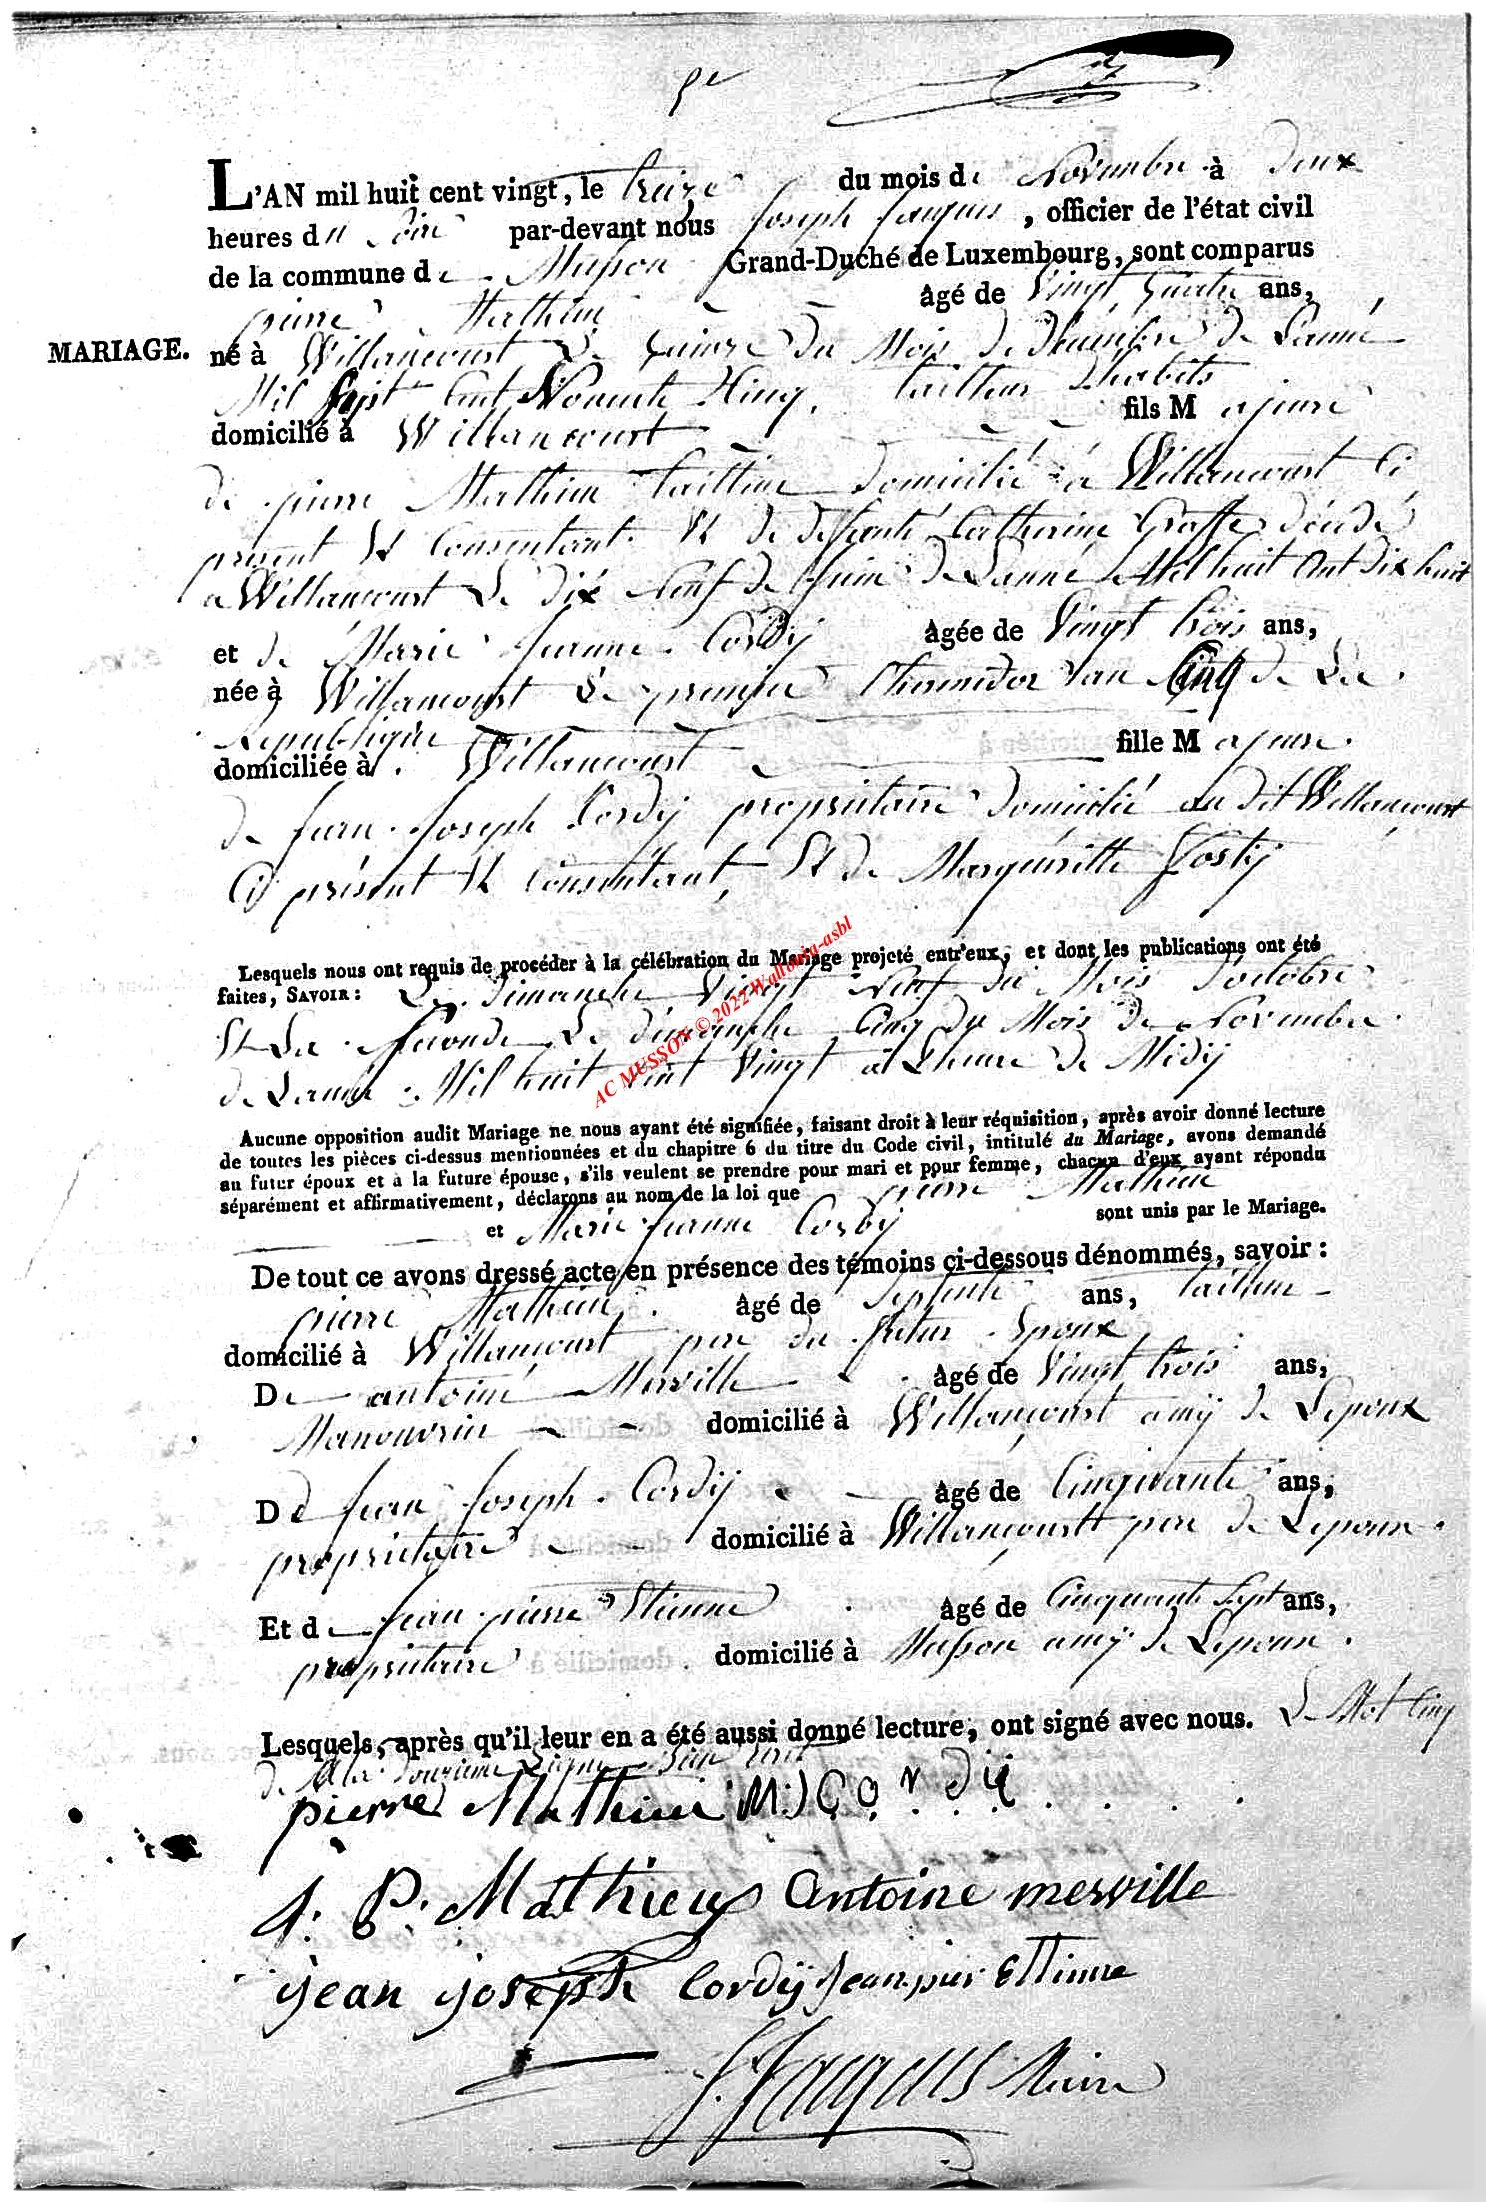 5e
L'AN mil huit cent vingt, le treize du mois de Novembre à deux
heures du Soire par-devant nous Joseph Jacques, officier de l'état civil
de la commune de Musson Grand-Duché de Luxembourg, sont comparus
pierre Mathieu âgé de Vingt quatre ans,
MARIAGE.
né à Willancourt Le quinze du Mois de décembre de Lanné
Mil Sept Cent Nonente Cinq, tailleur d'habits
domicilié à Willancourt fils Majeure
de pierre Mathieu tailleur domicilié à Willancourt Ci
présent Et Consentant Et de défunte Catherine Graffe décédé
a Willancourt Le dix neuf de Juin de Lanné Mil huit Cent dix huit
et de Marie Jeanne Cordÿ âgée de Vingt trois ans,
née à Willancourt Le premier thermidor lan Cinq de La
Republique
domiciliée à Willancourt fille Majeure
de Jean Joseph Cordÿ propriétaire domicilié au dit Willancourt
Ci présent Et Consentant, Et de Marguéritte Josty
Lesquels nous ont requis de procéder à la célébration du Mariage projeté entr'eux, et dont les publications ont été
faites, SAVOIR : Le dimanche Vingt Neuf du Mois doctobre
Et La Seconde Le dimanche Cinq du Mois de Novembre
de Lanné Mil huit Cent Vingt a Lheure de Midÿ
AC MUSSON © 2022 Wallonia-asbl
Aucune opposition audit Mariage ne nous ayant été signifiée, faisant droit à leur réquisition, après avoir donné lecture
de toutes les pièces ci-dessus mentionnées et du chapitre 6 du titre du Code civil, intitulé du Mariage, avons demandé
au futur époux et à la future épouse, s'ils veulent se prendre pour mari et pour femme, chacun d'eux ayant répondu
séparément et affirmativement, déclarons au nom de la loi que pierre Mathieu
et Marie Jeanne Cordÿ sont unis par le Mariage.
De tout ce avons dressé acte en présence des témoins ci-dessous dénommés, savoir :
pierre Mathieu âgé de Septente ans, tailleur
domicilié à Willancourt pere du futur Epoux
De antoine Merville âgé de Vingt trois ans,
Manouvrier domicilié à Willancourt amÿ de Lepoux
De Jean Joseph Cordÿ âgé de Cinquante ans,
propriétaire domicilié à Willancourt pere de Lepouse
Et de Jean pierre Etienne âgé de Cinquante Sept ans,
propriétaire domicilié à Musson amÿ de Lepouse
Lesquels, après qu'il leur en a été aussi donné lecture, ont signé avec nous. Le Mot Cinq
de la douzieme Ligne
pierre Mathieu M:J Cordÿ
P. Mathieu antoine merville
jean joseph Cordÿ Jean pier Ettienne
J. Jacques Maire